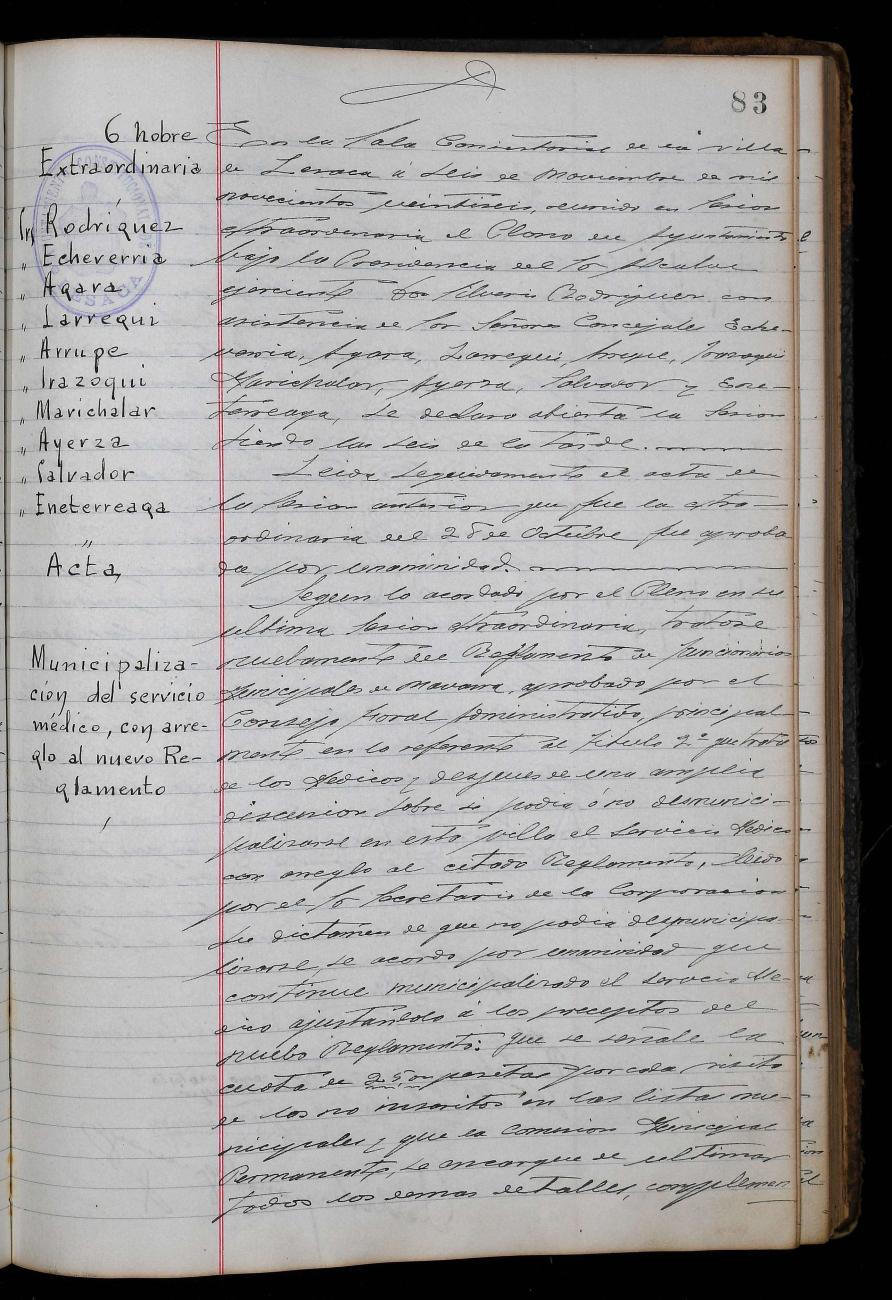 83
6 nobre
Extraordinaria
Srs Rodríguez
" Echeverria
" Agara
" Larrequi
" Arrupe
" Irazoqui
" Marichalar
" Ayerza
" Salvador
" Eneterreaga
"
Acta,
Municipaliza-
ción del servicio
médico, con arre-
glo al nuevo Re-
glamento
En la Sala Consistorial de la villa
de Lesaca á seis de Noviembre de mil
novecientos veintiseis, reunido en sesion
extraordinaria el Pleno del Ayuntamiento
bajo la Presidencia del Sr Alcalde
ejerciente Don Rodriguez con
asistencia de los Señores Concejales Eche-
verria, Agara, Larregui, Arrupe, Irazoqui
Marichalar, Ayerza, Salvador y Ene-
terreaga, se declaro abierta la sesion
siendo las seis de la tarde.
Leida seguidamente el acta de
la sesion anterior que fue la extra-
ordinaria del 28 de Octubre fue aproba
da por unanimidad.
Segun lo acordado por el Pleno en su
ultima sesion extraordinaria, tratose
nuebamente del Reglamento de funcionarios
Municipales de Navarra, aprobado por el
Consejo Foral Administrativo, principal
mente en lo referente al Titulo 2º que trata
de los Medicos y despues de una amplia
discusion sobre si podia ó no desmunici-
palizarse en esta villa el servicio Medico
con arreglo al citado Reglamento, leido
por el Sr Secretario de la Corporacion
su dictamen de que no podia desmunicipa-
lizarse, se acordo por unanimidad que
continue municipalizado el servicio Me-
dico ajustandolo á los preceptos del
nuebo Reglamento: que se señale la
cuota de pesetas por cada visita
de los no inscritos en las listas mu-
nicipales y que la Comision Municipal
Permanente, se encargue de ultimar
todos los demas detalles, complemen